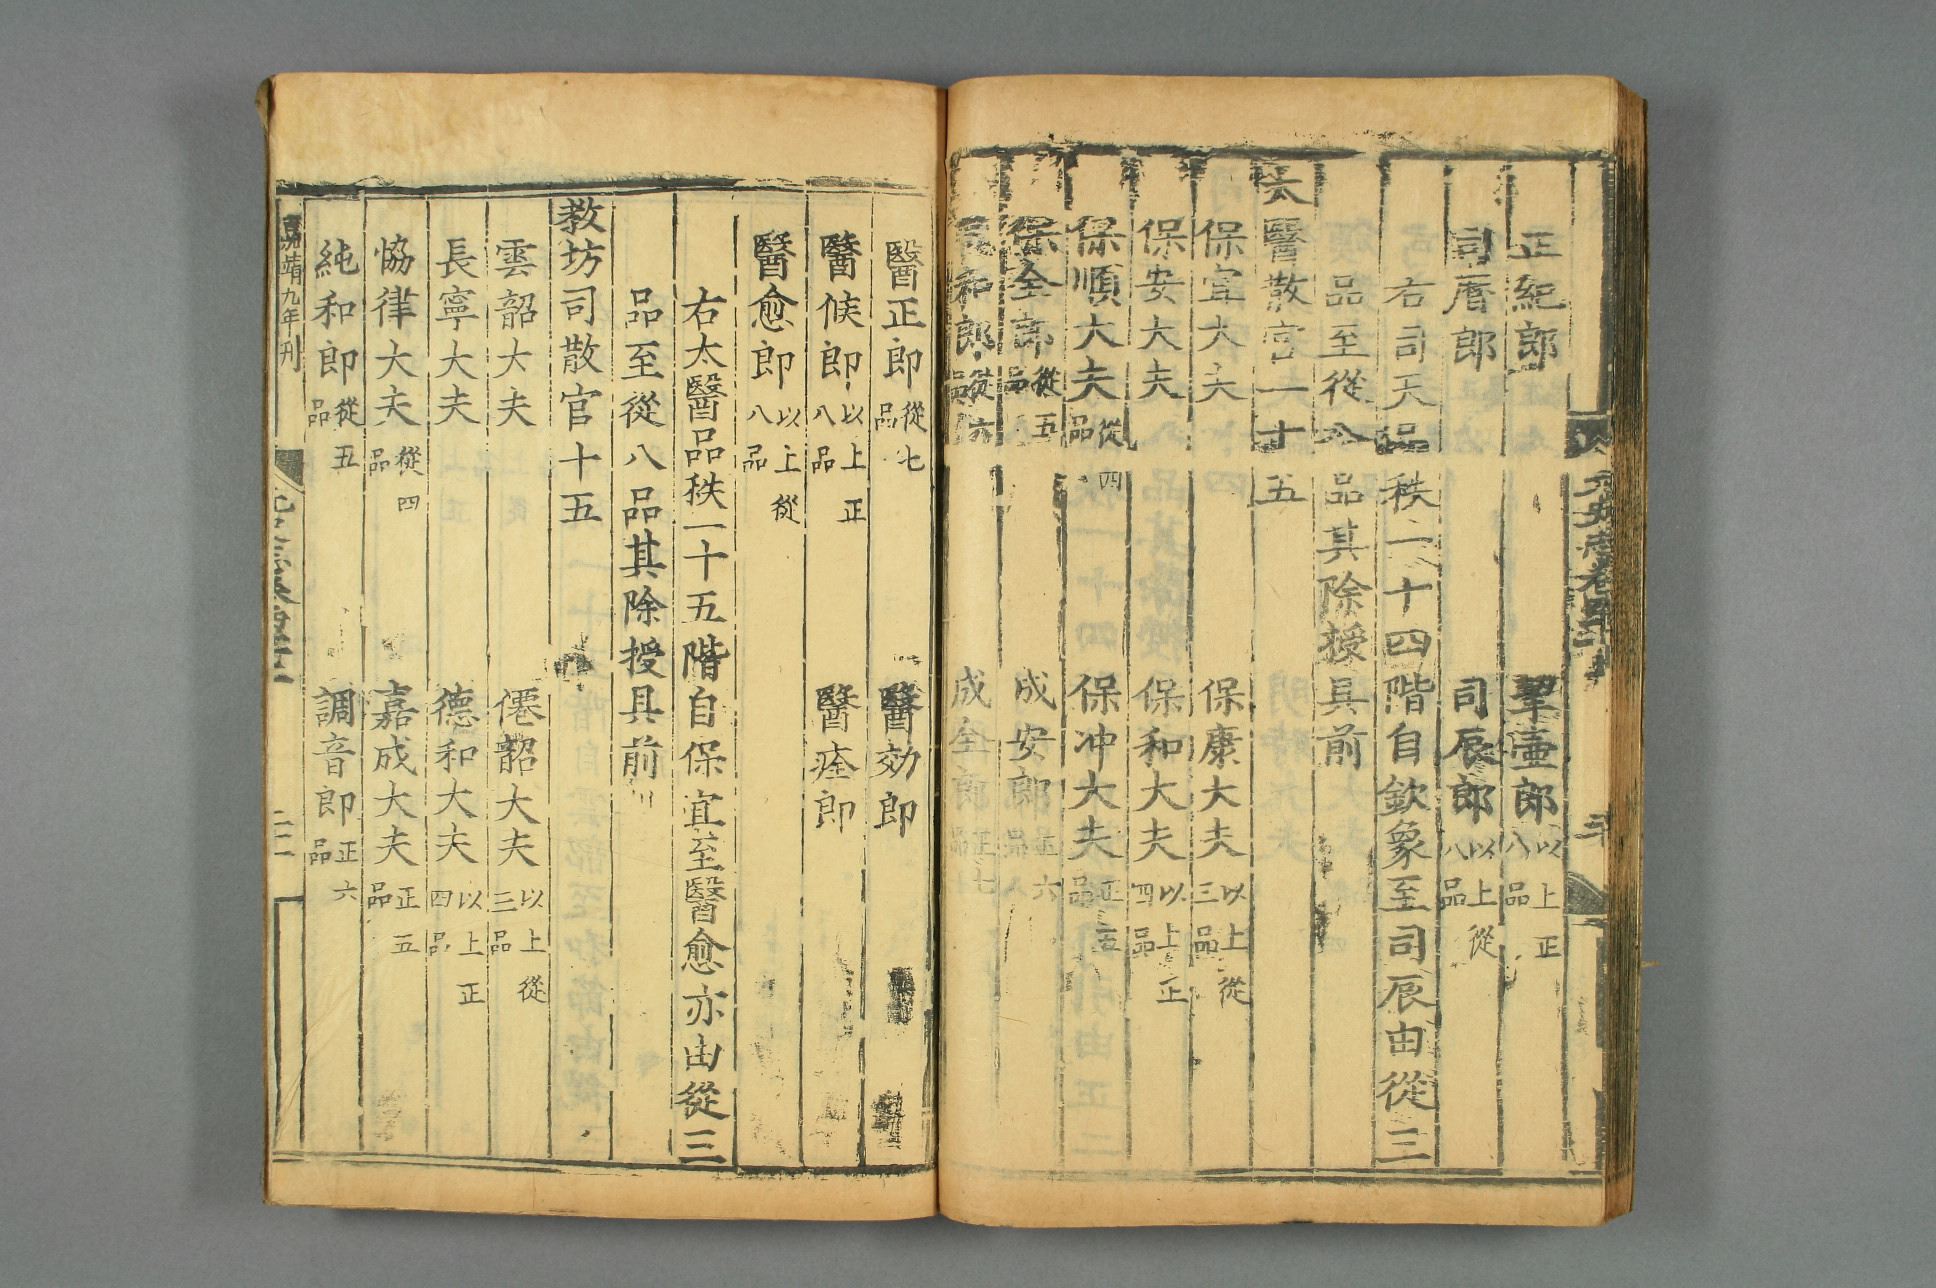 正紀郎 挈壺郎以上正八品
司曆郎 司辰郎以上從八品
右司天品秩一十四階自欽象至司辰由從三
品至從八品其除授具前
太醫散官一十五
保宜大夫 保康大夫以上從三品
保安大夫 保和大夫以上正四品
保順大夫從四品 保冲大夫正五品
保全郎從五品 成安郎正六品
成和郎從六品 成全郎正七品
醫正郎從七品 醫効郎
醫候郎以上正八品 醫痊郎
醫愈郎以上從八品
右太醫品秩一十五階自保宜至醫愈亦由從三
品至從八品其除授具前
教坊司散官十五
雲韶大夫 僊韶大夫以上從三品
長寧大夫 德和大夫以上正四品
恊律大夫從四品 嘉成大夫正五品
純和郎從五品 調音郎正六品
嘉靖九年刊